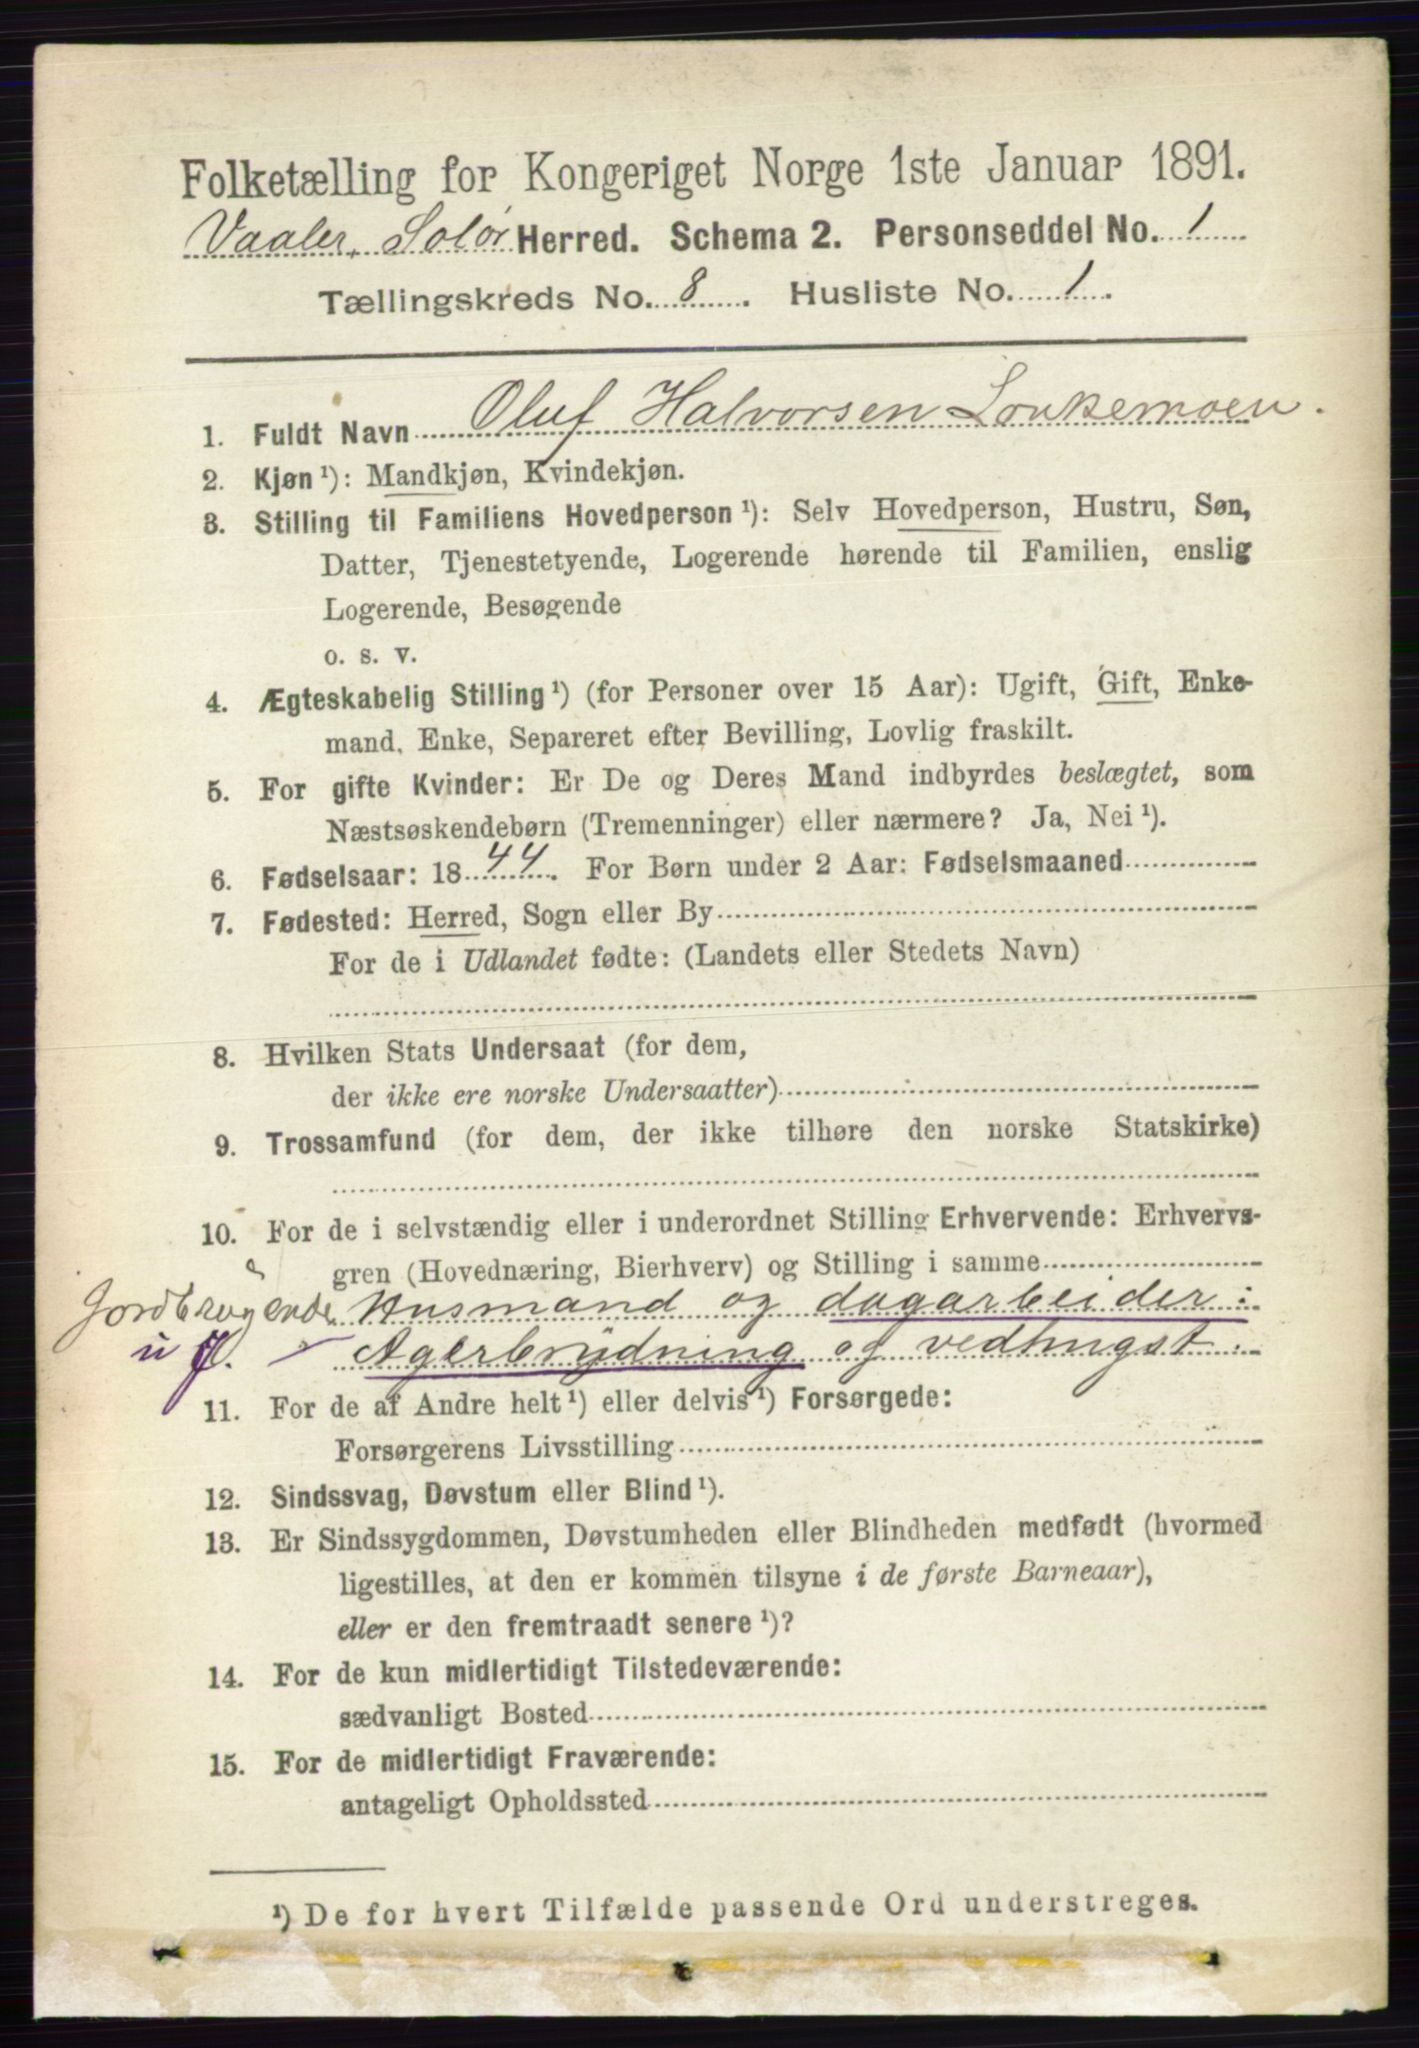 Folketælling for Kongeriget Norge 1ste Januar 1891.
Vaaler, Solør Herred. Schema 2. Personseddel No. 1
Tællingskreds No. 8. Husliste No. 1.
1. Fuldt Navn Oluf Halvorsen Loukemoen.
2. Kjøn ¹): Mandkjøn, Kvindekjøn.
3. Stilling til Familiens Hovedperson ¹): Selv Hovedperson, Hustru, Søn,
Datter, Tjenestetyende, Logerende hørende til Familien, enslig
Logerende, Besøgende
o. s. v.
4. Ægteskabelig Stilling ¹) (for Personer over 15 Aar): Ugift, Gift, Enke-
mand, Enke, Separeret efter Bevilling, Lovlig fraskilt.
5. For gifte Kvinder: Er De og Deres Mand indbyrdes beslægtet, som
Næstsøskendebørn (Tremenninger) eller nærmere? Ja, Nei ¹).
6. Fødselsaar: 1844. For Børn under 2 Aar: Fødselsmaaned
7. Fødested: Herred, Sogn eller By
For de i Udlandet fødte: (Landets eller Stedets Navn)
8. Hvilken Stats Undersaat (for dem,
der ikke ere norske Undersaatter)
9. Trossamfund (for dem, der ikke tilhøre den norske Statskirke)
10. For de i selvstændig eller i underordnet Stilling Erhvervende: Erhvervs-
gren (Hovednæring, Bierhverv) og Stilling i samme
Jordbrugende Husmand og dagarbeider:
u J. Agerbrydning og vedhugst.
11. For de af Andre helt ¹) eller delvis ¹) Forsørgede:
Forsørgerens Livsstilling
12. Sindssvag, Døvstum eller Blind ¹).
13. Er Sindssygdommen, Døvstumheden eller Blindheden medfødt (hvormed
ligestilles, at den er kommen tilsyne i de første Barneaar),
eller er den fremtraadt senere ¹)?
14. For de kun midlertidigt Tilstedeværende:
sædvanligt Bosted
15. For de midlertidigt Fraværende:
antageligt Opholdssted
¹) De for hvert Tilfælde passende Ord understreges.